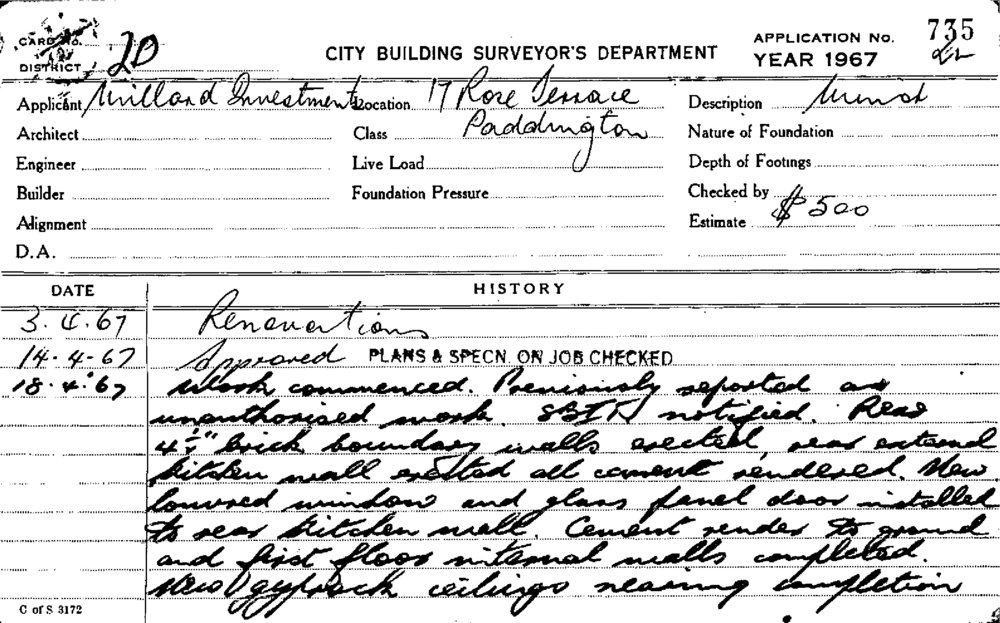 CARD No.
DISTRICT 2D
CITY BUILDING SURVEYOR'S DEPARTMENT
APPLICATION No. 735
YEAR 1967
Applicant Millard Investments Location 17 Rose Terrace Description
Architect Class Paddington Nature of Foundation
Engineer Live Load Depth of Footings
Builder Foundation Pressure Checked by
Alignment Estimate $500
D.A.
DATE HISTORY
3.4.67 Renovations
14-4-67 Approved PLANS & SPECN. ON JOB CHECKED
18.4.67 Work commenced. Previously reported as
unauthorised work. notified. Rear
4½" brick boundary walls erected, rear external
kitchen wall erected all cement rendered. New
louvred window and glass panel door installed
to rear kitchen wall. Cement render to ground
and first floor internal walls completed.
New gyprock ceilings nearing completion
C of S 3172